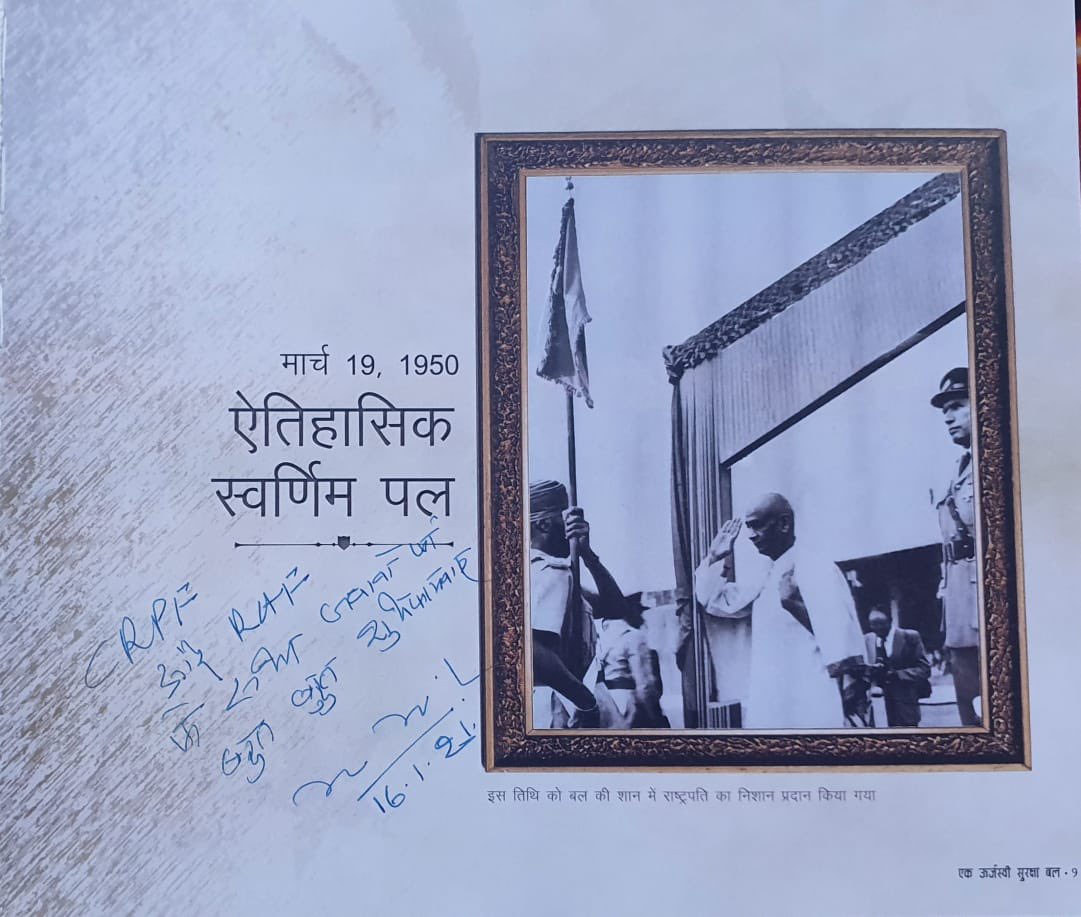 मार्च 19, 1950
ऐतिहासिक
स्वर्णिम पल
CRPF
और RAF
के सभी जवानों को
बहुत बहुत शुभकामनाएं
16.1.21.
इस तिथि को बल की शान में राष्ट्रपति का निशान प्रदान किया गया
एक ऊर्जस्वी सुरक्षा बल • 9